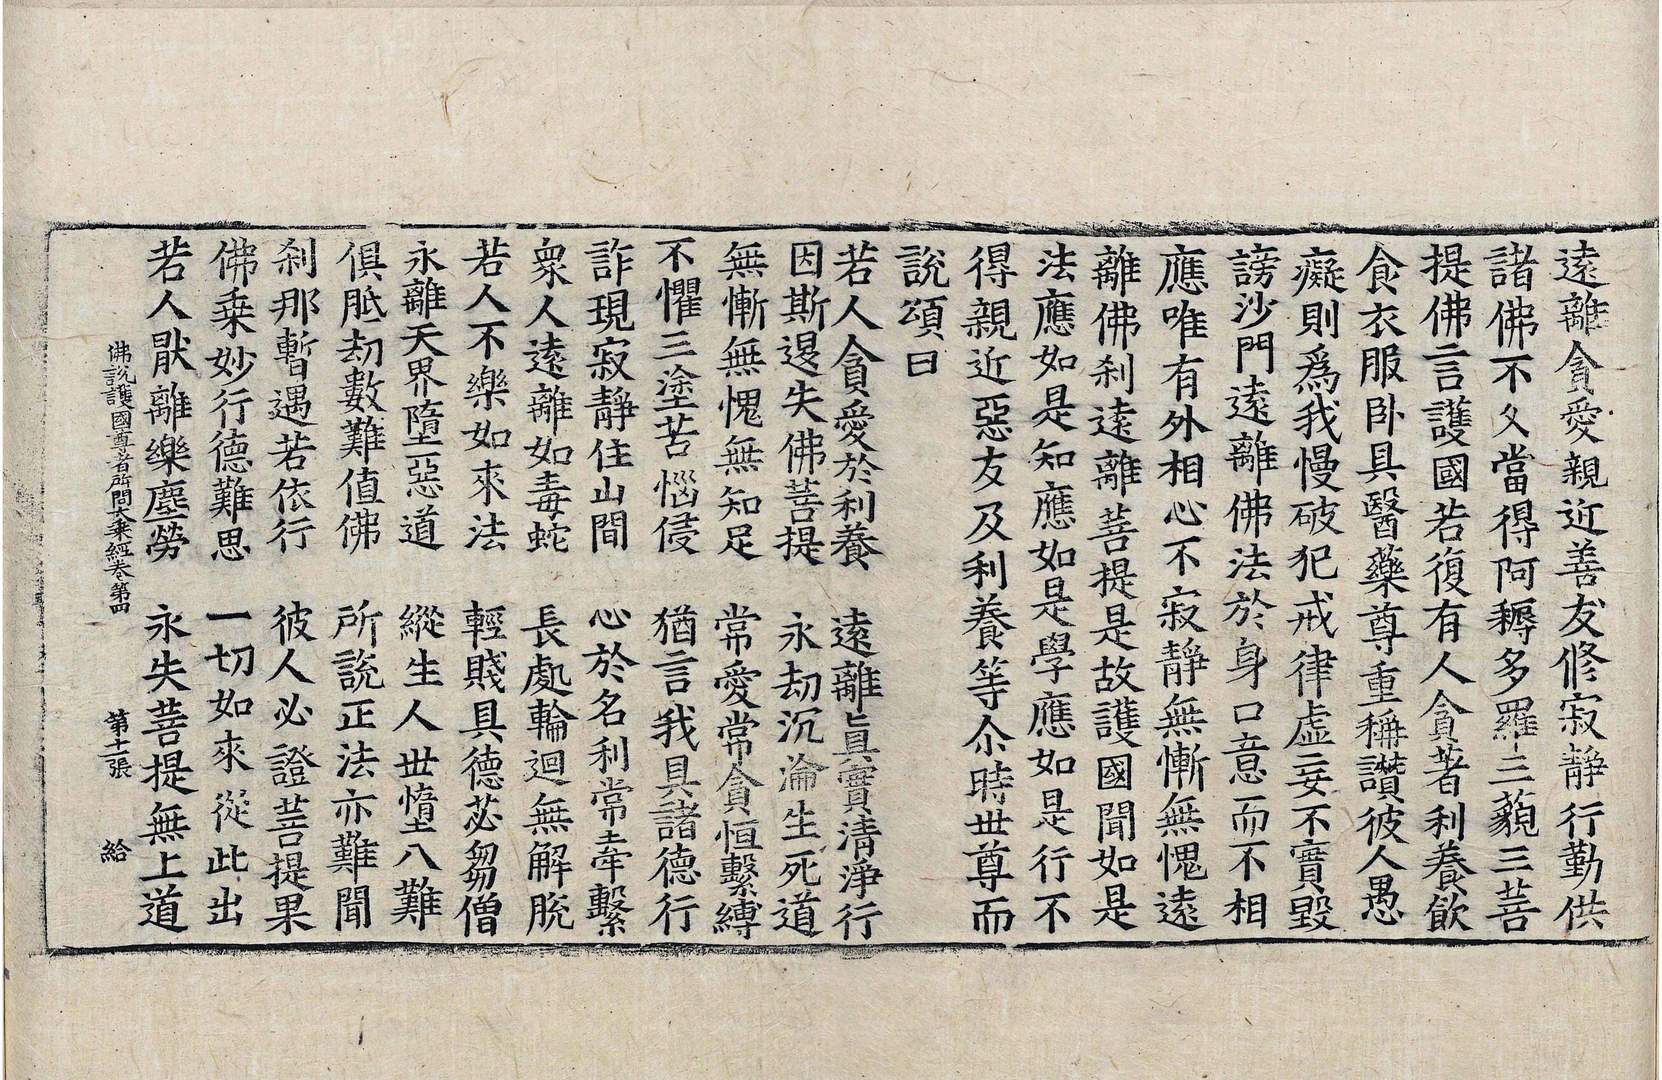 遠離貪愛親近善友修寂靜行勤供
諸佛不久當得阿耨多羅三藐三菩
提佛言護國若復有人貪著利養飲
食衣服卧具醫藥尊重稱讚彼人愚
癡則爲我慢破犯戒律虛妄不實毀
謗沙門遠離佛法於身口意而不相
應唯有外相心不寂靜無慚無愧遠
離佛刹遠離菩提是故護國聞如是
法應如是知應如是學應如是行不
得親近惡友及利養等尒時世尊而
說頌曰
若人貪愛於利養　遠離眞實清淨行
因斯退失佛菩提　永劫沉淪生死道
無慚無愧無知足　常愛常貪恒繫縛
不懼三塗苦惱侵　猶言我具諸德行
詐現寂靜住山間　心於名利常牽繫
衆人遠離如毒蛇　長處輪迴無解脫
若人不樂如來法　輕賤具德苾芻僧
永離天界墮惡道　縱生人世憜八難
俱胝劫數難值佛　所說正法亦難聞
刹那暫遇若依行　彼人必證菩提果
佛乘妙行德難思　一切如來從此出
若人猒離樂塵勞　永失菩提無上道
佛說護國尊者所問大乘經卷第四　第十一張　給